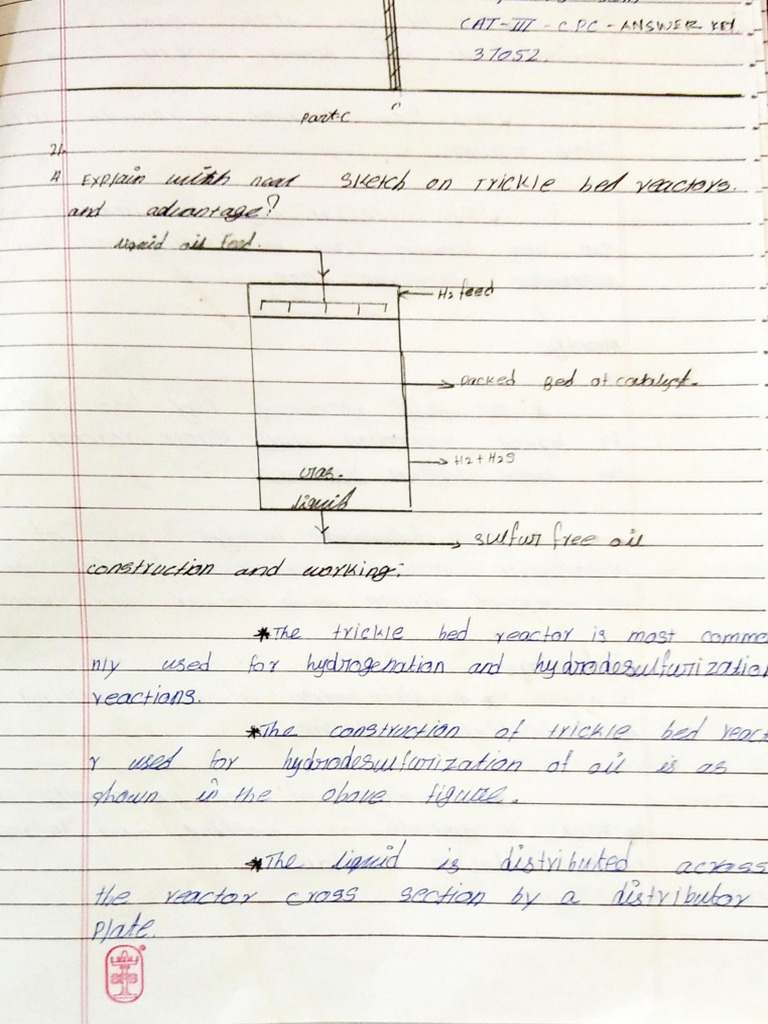 CAT-III-CPC-ANSWER KEY
37052.
Part-C
21.
A Explain with neat sketch on Trickle bed reactors.
and advantage?
Liquid oil feed.
H2 feed
Packed Bed of catalyst.
H2 + H2S
Gas.
liquid
Sulfur free oil
construction and working:
*The trickle bed reactor is most commo
nly used for hydrogenation and hydrodesulfurization
reactions.
*The construction of trickle bed react
r used for hydrodesulfurization of oil is as
shown in the above figure.
*The liquid is distributed across
the reactor cross section by a distributor
Plate.